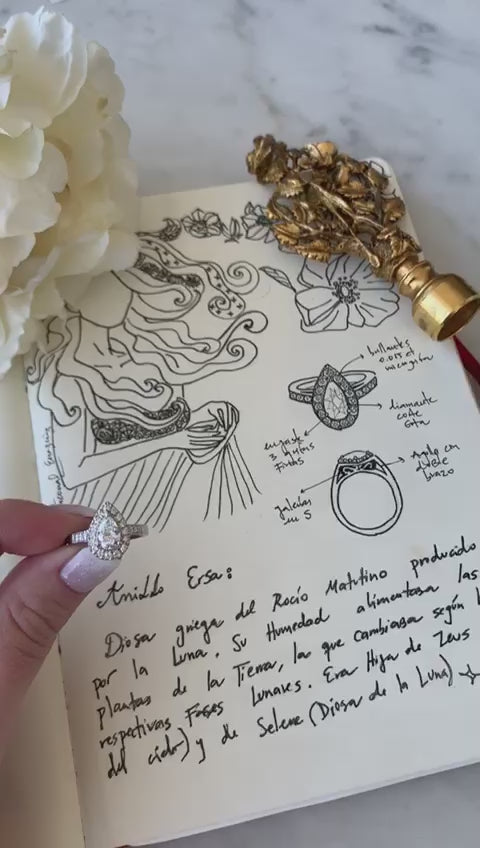 brillantes
0.055 ct
diamante
corte
Gota
engaste
3 griffes
Finas
Anillo con
doble
brazo
galerías
en S
Anillo Ersa:
Diosa griega del Rocío Matutino producido
por la Luna. Su Humedad alimentaba las
plantas de la Tierra, la que cambiaba según
respectivas Fases Lunares. Era Hija de Zeus
del cielo) y de Selene (Diosa de la Luna)